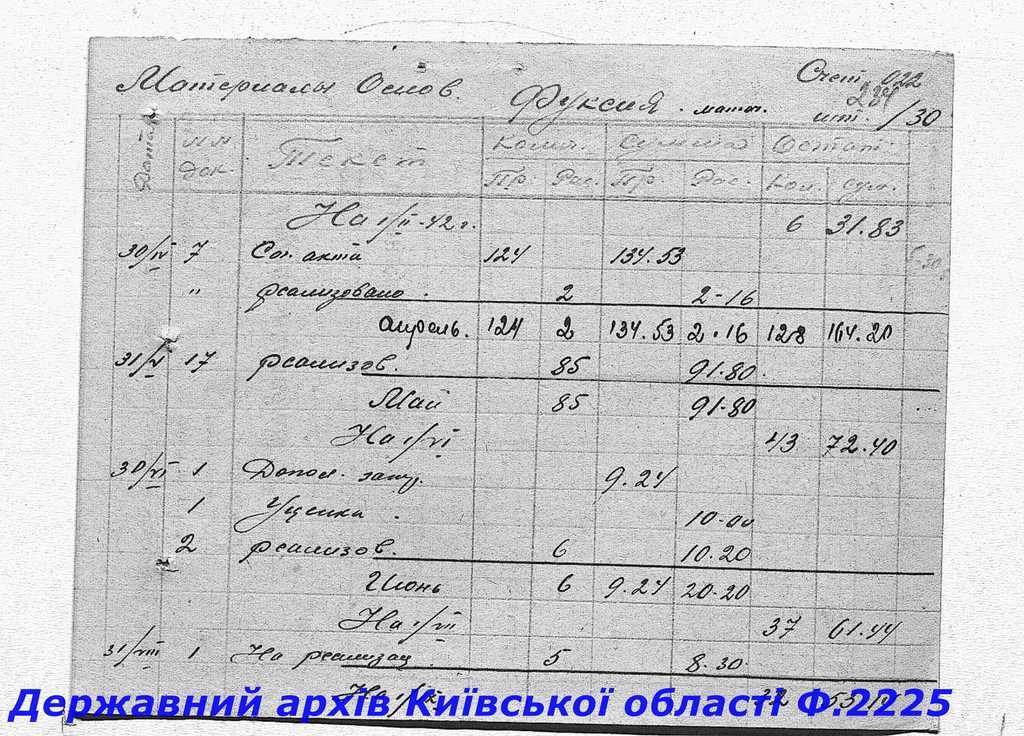 Материалы Основ. Фуксия. маточ. Счет 022
284
шт. /30
Дата NN док. Текст Колич. Сумма Остат.
Пр. Рас. Пр. Рас. Кол. сум.
На 1/II-42 г. 6 31.83
30/IV 7 Сог. акта 124 134.53
" реализовано. 2 2-16
Апрель. 124 2 134.53 2.16 128 164.20
31/V 17 реализов. 85 91.80.
Май 85 91-80
На 1/VI 43 72.40
30/VI 1 Допол. 9.24
1 Уценка. 10-00
2 реализов. 6 10.20
Июнь 6 9.24 20-20
На 1/VII 37 61-44
31/VIII 1 На реализац. 5 8.30
На 32
Державний архів Київської області Ф.2225